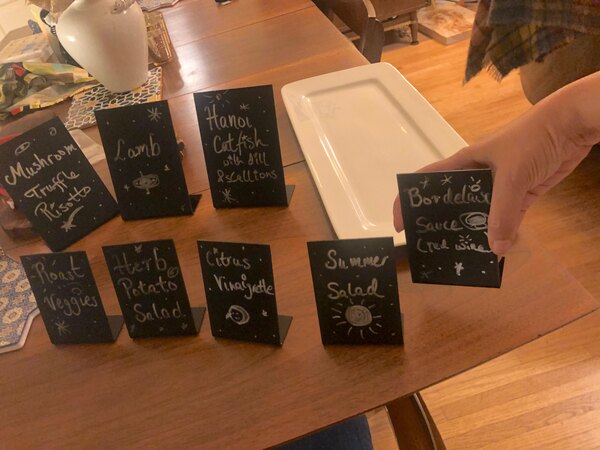 Mushroom
Truffle
Risotto
Lamb
Hanoi
Catfish
with Dill
& scalltons
Bordelaise
Sauce
(red wine)
Roast
Veggies
Herb
Potato
Salad
Citrus
Vinaigrette
Summer
Salad